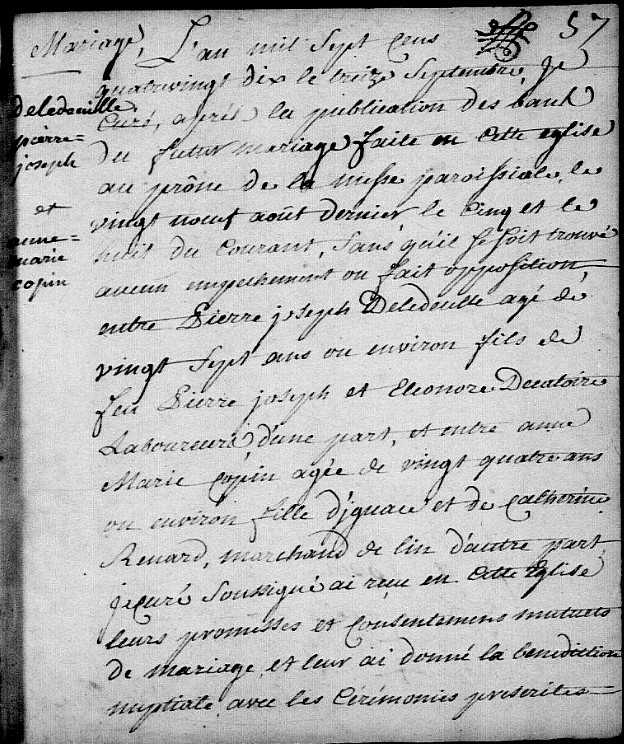 57
Mariage, L'an mil Sept Cens
quatrevingt dix le treize Septembre, Je
Curé, après la publication des bans
du futur mariage faite en cette eglise
au prône de la messe paroissiale, le
vingt neuf août dernier le Cinq et le
huit du Courant, Sans qu'il se soit trouvé
aucun empechement ou fait opposition,
entre Pierre joseph Deledeulle agé de
vingt Sept ans ou environ fils de
feu Pierre joseph et Eleonore Decatoire
Laboureurs d'une part, et entre anne
Marie Copin agée de vingt quatre ans
ou environ fille d'ignace et de Catherine
Renard, marchand de lin d'autre part,
je curé Soussigné ai reçu en cette Eglise
leurs promesses et Consentemens mutuels
de mariage et leur ai donné la benediction
nuptiale avec les Cérémonies prescrites
deledeulle
pierre=
joseph
et
anne=
marie
copin